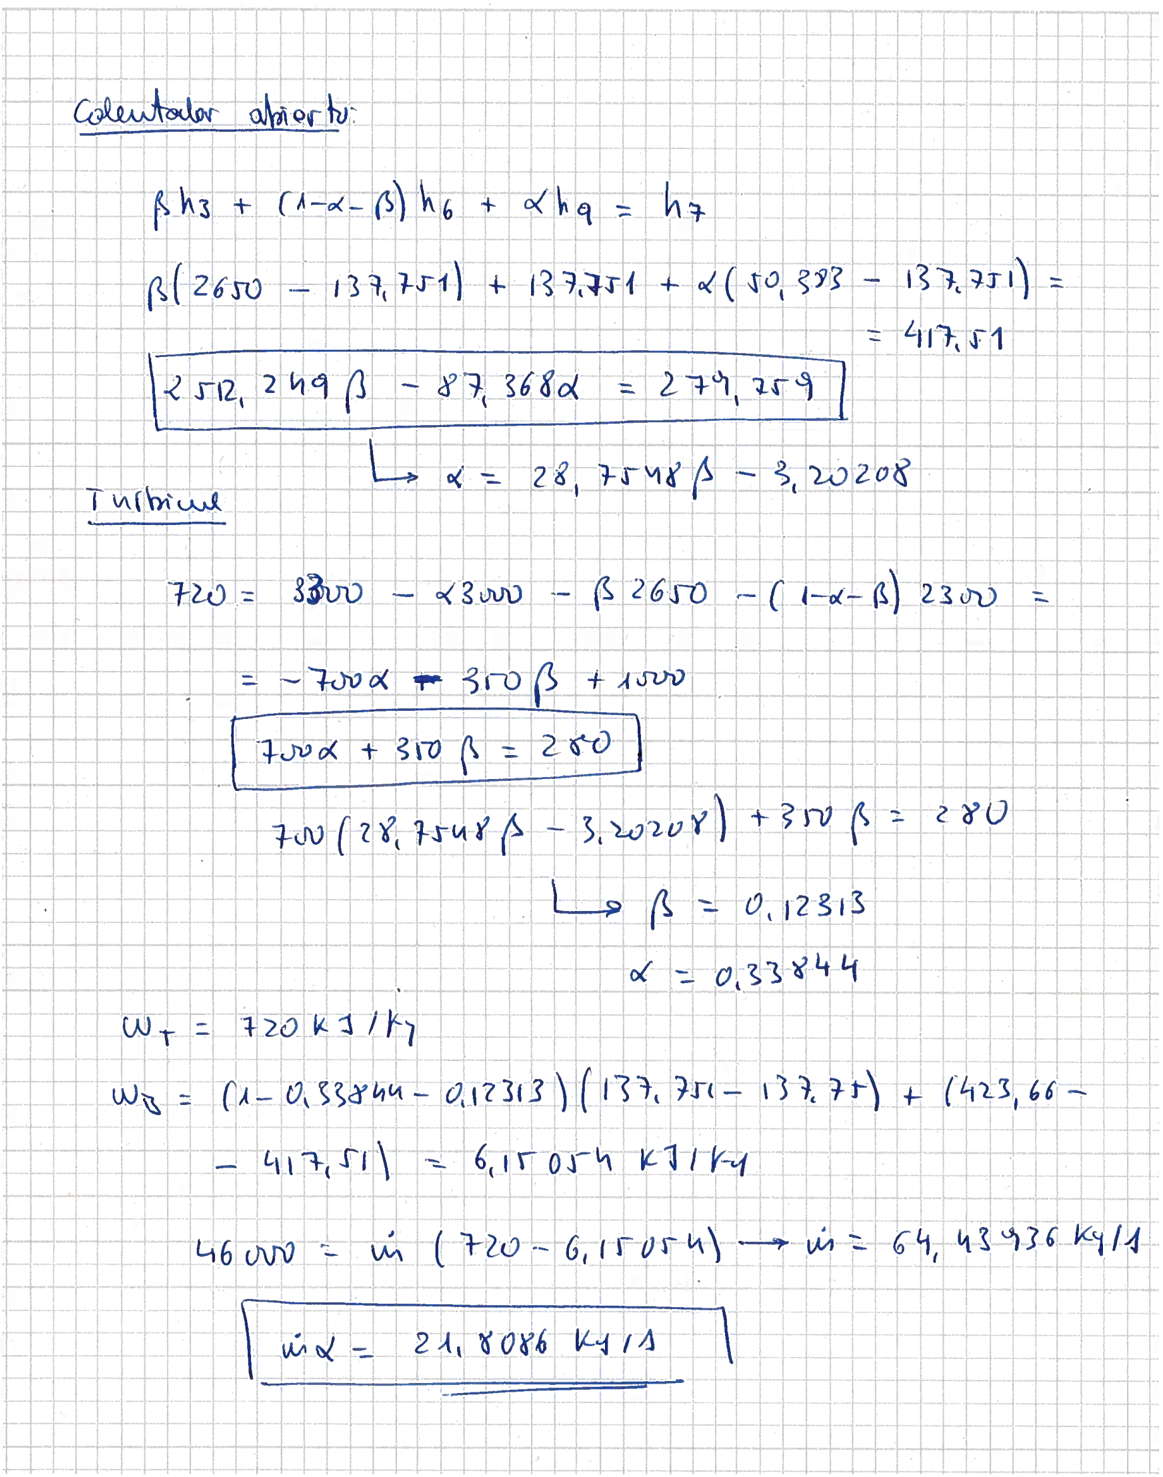 Calentador abierto:
βh3 + (1-α-β) h6 + αh9 = h7
β(2650 - 137,751) + 137,751 + α(50,383 - 137,751) =
= 417,51
2512,249β - 87,368α = 279,759
↳ α = 28,7548β - 3,20208
Turbina
720 = 3300 - α3000 - β2650 - (1-α-β) 2300 =
= -700α - 350β + 1000
700α + 350β = 280
700(28,7548β - 3,20208) + 350β = 280
↳ β = 0,12313
α = 0,33844
wT = 720 kJ/kg
wB = (1-0,33844-0,12313)(137,751-137,75) + (423,66-
- 417,51) = 6,15054 kJ/kg
46000 = ṁ (720-6,15054) → ṁ = 64,43936 kg/s
ṁα = 21,8086 kg/s